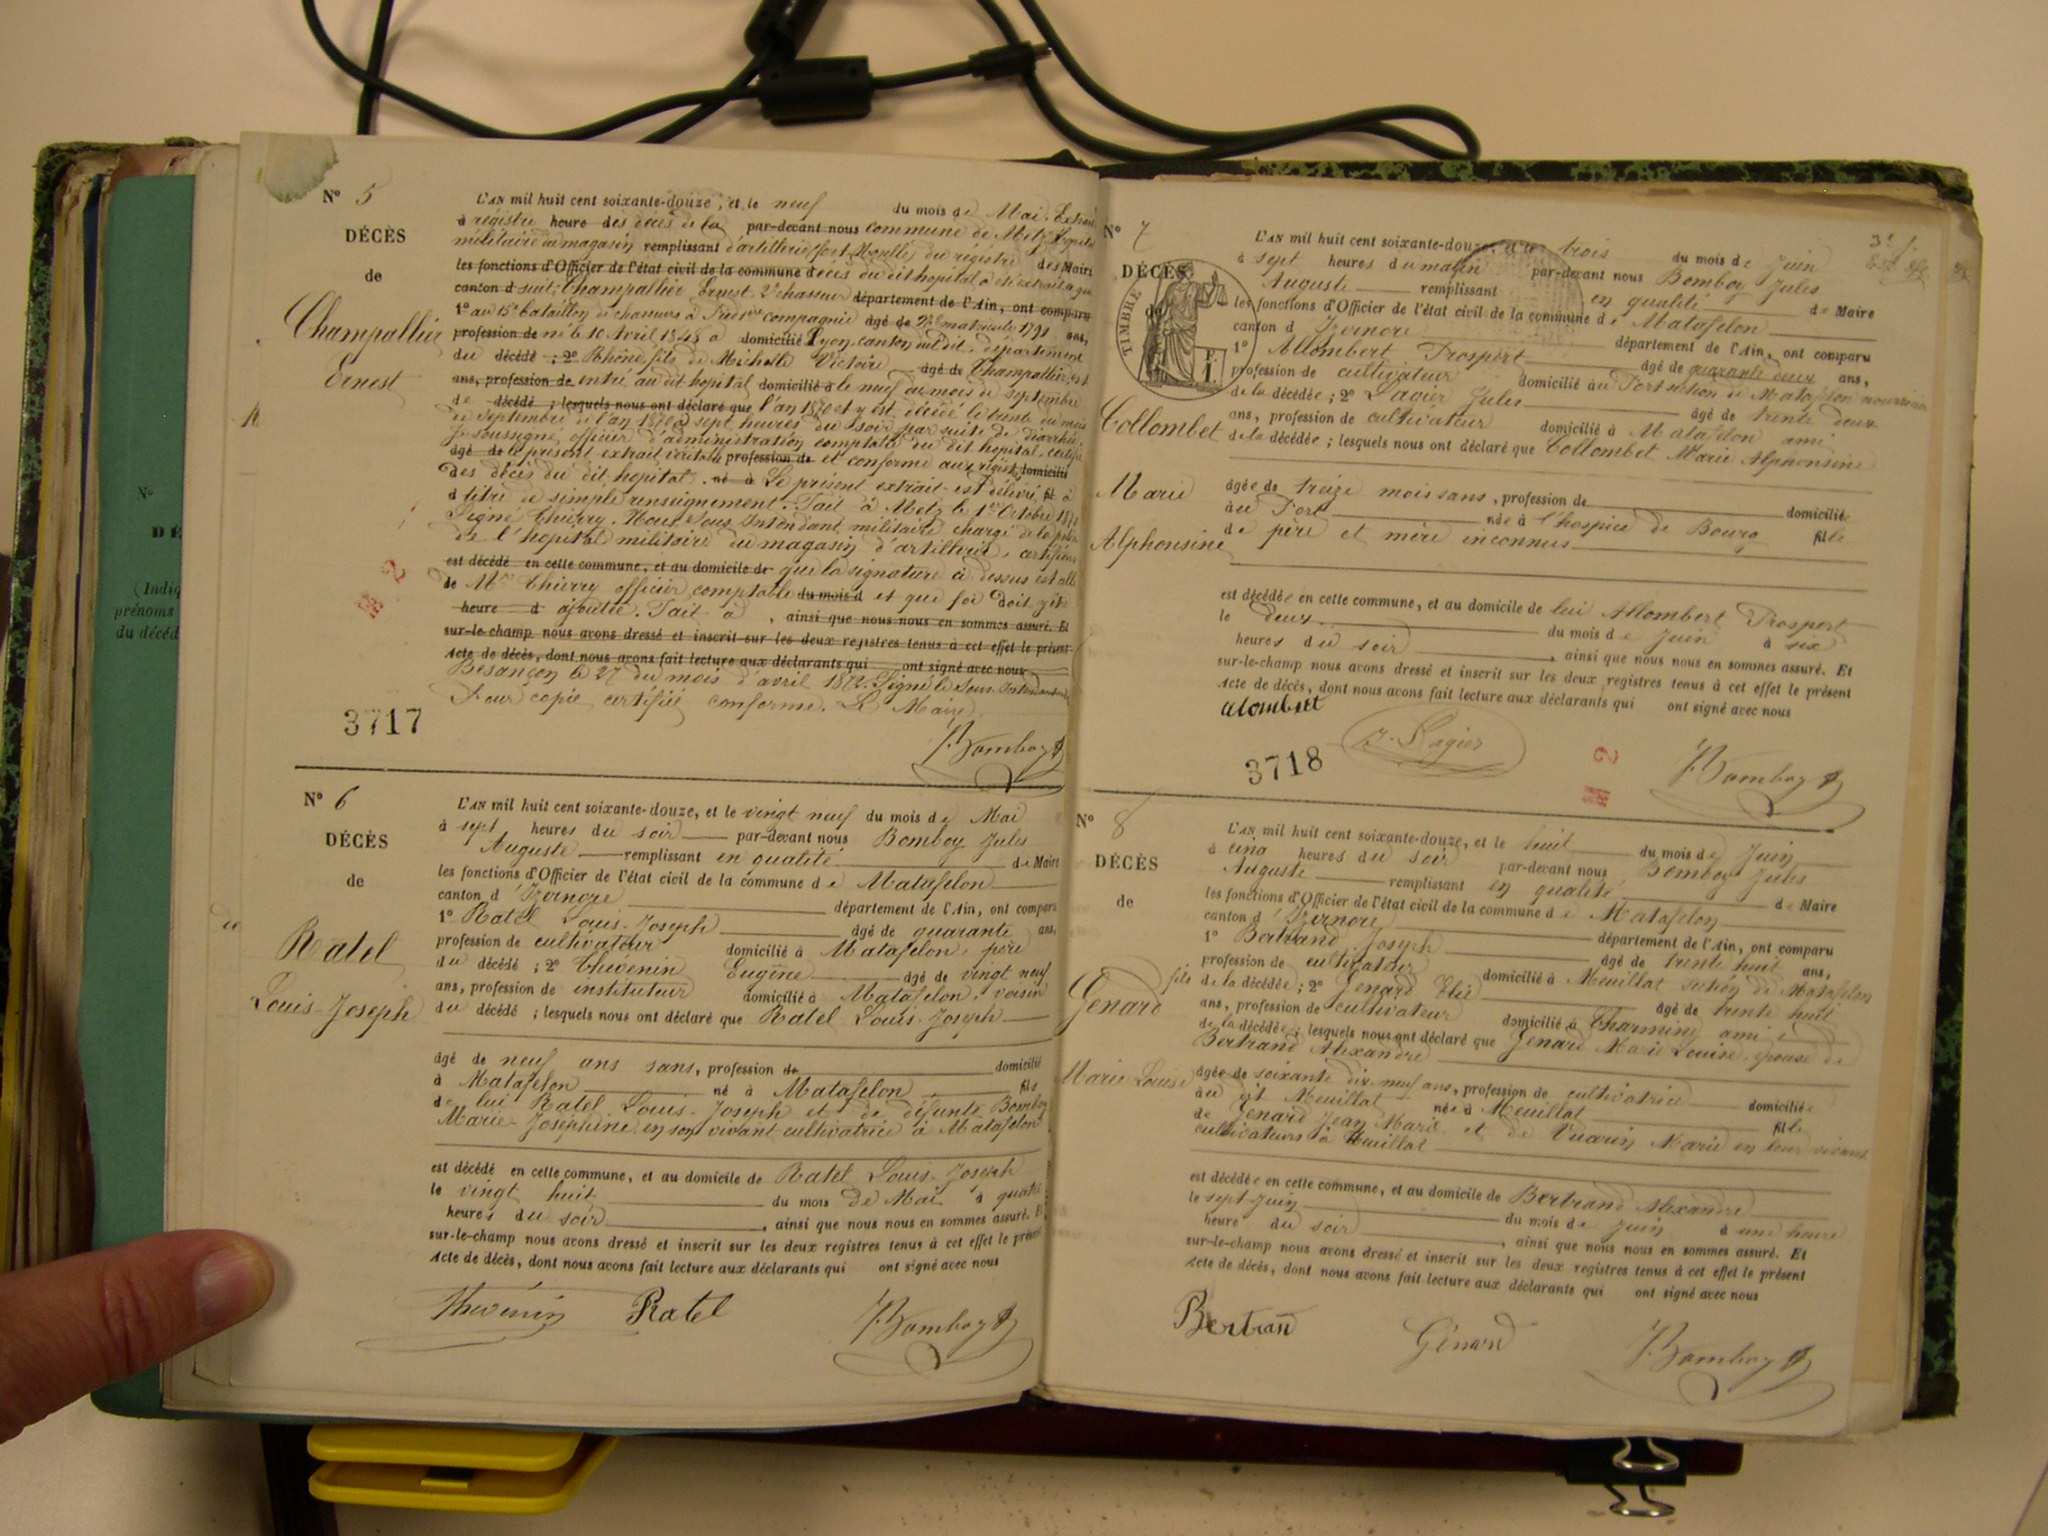 N° 5
DÉCÈS
de
Champallier
Ernest
L'AN mil huit cent soixante-douze, et le neuf du mois de Mai. Extrait
à registre heure des décès de la par-devant nous commune de Metz hopital
militaire du magasin remplissant d'artillerie (fort Moselle) du régistre des Maire
les fonctions d'Officier de l'état civil de la commune décès du dit hopital a été extrait ce qui
canton d suit: Champallier Ernest 2e chasseur département de l'Ain, ont comparu
1° au 15e bataillon de chasseurs à pied compagnie âgé de matricule 1791 ans,
profession de né le 10 Avril 1848 à domicilié Lyon, canton du dit, département
du décédé ; 2° Rhône, fils de Michel et Victoire âgé de Champallier, est
ans, profession de entré au dit hopital domicilié à le neuf du mois de Septembre
de décédé ; lesquels nous ont déclaré que l'an 1870 et y est décédé le trente du mois
de Septembre de l'an 1870 à sept heures du soir par suite de diarrhée.
Je soussigné, officier d'administration comptable du dit hopital, certifie
âgé de le présent extrait véritable profession de et conforme aux régistres domicilié
des décès du dit hopital. né à Le présent extrait est délivré fil à
à titre de simple renseignement. Fait à Metz le 1er Octobre
Signé Thierry. Nous Sous Intendant militaire chargé de la police
de l'hopital militaire du magasin d'artillerie, certifions
est décédé en cette commune, et au domicile de que la signature ci dessus est celle
de Mr Thierry officier comptable du mois d et que foi doit y être
heure d ajoutée. Fait à , ainsi que nous nous en sommes assuré. Et
sur-le-champ nous avons dressé et inscrit sur les deux registres tenus à cet effet le présent
Acte de décès, dont nous avons fait lecture aux déclarants qui ont signé avec nous
Besançon le 27 du mois d'avril 1872. Signé le Sous-Intendant
Pour copie certifiée conforme. Le Maire.
3717
J. Bomboy
N° 6
DÉCÈS
de
Ratel
Louis-Joseph
L'AN mil huit cent soixante-douze, et le vingt neuf du mois de Mai
à sept heures du soir par-devant nous Bomboy Jules
Auguste remplissant en qualité de Maire
les fonctions d'Officier de l'état civil de la commune de Matafelon
canton d'Izernore département de l'Ain, ont comparu
1° Ratel Louis-Joseph âgé de quarante ans,
profession de cultivateur domicilié à Matafelon, père
du décédé ; 2° Thévenin Eugène âgé de vingt neuf
ans, profession de instituteur domicilié à Matafelon, voisin
du décédé ; lesquels nous ont déclaré que Ratel Louis-Joseph
âgé de neuf ans sans, profession de domicilié
à Matafelon né à Matafelon fils
de lui Ratel Louis-Joseph et de défunte Bomboy
Marie-Joséphine en son vivant cultivatrice à Matafelon
est décédé en cette commune, et au domicile de Ratel Louis-Joseph
le vingt huit du mois de Mai à quatre
heures du soir, ainsi que nous nous en sommes assuré. Et
sur-le-champ nous avons dressé et inscrit sur les deux registres tenus à cet effet le présent
Acte de décès, dont nous avons fait lecture aux déclarants qui ont signé avec nous
Thévenin Ratel J. Bomboy
N°
DÉ
(Indiq
prénoms
du décéd
N° 7
DÉCÈS
de
TIMBRE
Collombet
Marie
Alphonsine
L'AN mil huit cent soixante-douze, et le trois du mois de Juin
à sept heures du matin par-devant nous Bomboy Jules
Auguste remplissant en qualité de Maire
les fonctions d'Officier de l'état civil de la commune de Matafelon
canton d'Izernore département de l'Ain, ont comparu
1° Allombert Prosport âgé de quarante deux ans,
profession de cultivateur domicilié au Port section de Matafelon nourricier
de la décédée ; 2° Lagier Jules âgé de trente deux
ans, profession de cultivateur domicilié à Matafelon ami
de la décédée ; lesquels nous ont déclaré que Collombet Marie Alphonsine
âgée de treize mois sans, profession de domiciliée
au Port née à l'hospice de Bourg fille
de père et mère inconnus
est décédée en cette commune, et au domicile de lui Allombert Prosport
le deux du mois de Juin à six
heures du soir, ainsi que nous nous en sommes assuré. Et
sur-le-champ nous avons dressé et inscrit sur les deux registres tenus à cet effet le présent
Acte de décès, dont nous avons fait lecture aux déclarants qui ont signé avec nous
alombert J. Lagier
3718
J. Bomboy
N° 8
DÉCÈS
de
Genard
Marie Louise
L'AN mil huit cent soixante-douze, et le huit du mois de Juin
à cinq heures du soir par-devant nous Bomboy Jules
Auguste remplissant en qualité de Maire
les fonctions d'Officier de l'état civil de la commune de Matafelon
canton d'Izernore département de l'Ain, ont comparu
1° Bertrand Joseph âgé de trente huit ans,
profession de cultivateur domicilié à Meuillat section de Matafelon
fils de la décédée ; 2° Genard Elie âgé de trente huit
ans, profession de cultivateur domicilié à Tharmine ami
de la décédée ; lesquels nous ont déclaré que Genard Marie Louise épouse de
Bertrand Alexandre
âgée de soixante dix-neuf ans, profession de cultivatrice domiciliée
au dit Meuillat née à Meuillat fille
de Genard Jean Marie et de Vuarin Marie en leur vivant
cultivateurs à Meuillat
est décédée en cette commune, et au domicile de Bertrand Alexandre
le sept Juin du mois de Juin à une heure
heure du soir, ainsi que nous nous en sommes assuré. Et
sur-le-champ nous avons dressé et inscrit sur les deux registres tenus à cet effet le présent
Acte de décès, dont nous avons fait lecture aux déclarants qui ont signé avec nous
Bertran Génard J. Bomboy